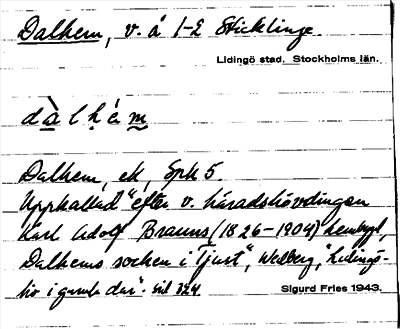 Dalhem, v. å 1-2 Sticklinge.
Lidingö stad. Stockholms län.
dàlhém
Dalhem, ek, Spk 5.
Uppkallad "efter v. häradshövdingen
Karl Adolf Brauns (1826-1904) hembygd,
Dalhems socken i Tjust", Wedberg, "Lidingö-
liv i gamla dar". Sid 324
Sigurd Fries 1943.